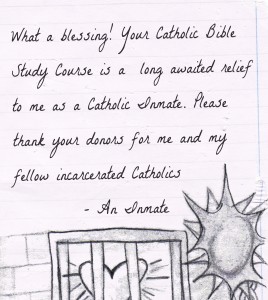 What a blessing! Your Catholic Bible
Study Course is a long awaited relief
to me as a Catholic Inmate. Please
thank your donors for me and my
fellow incarcerated Catholics
- An Inmate